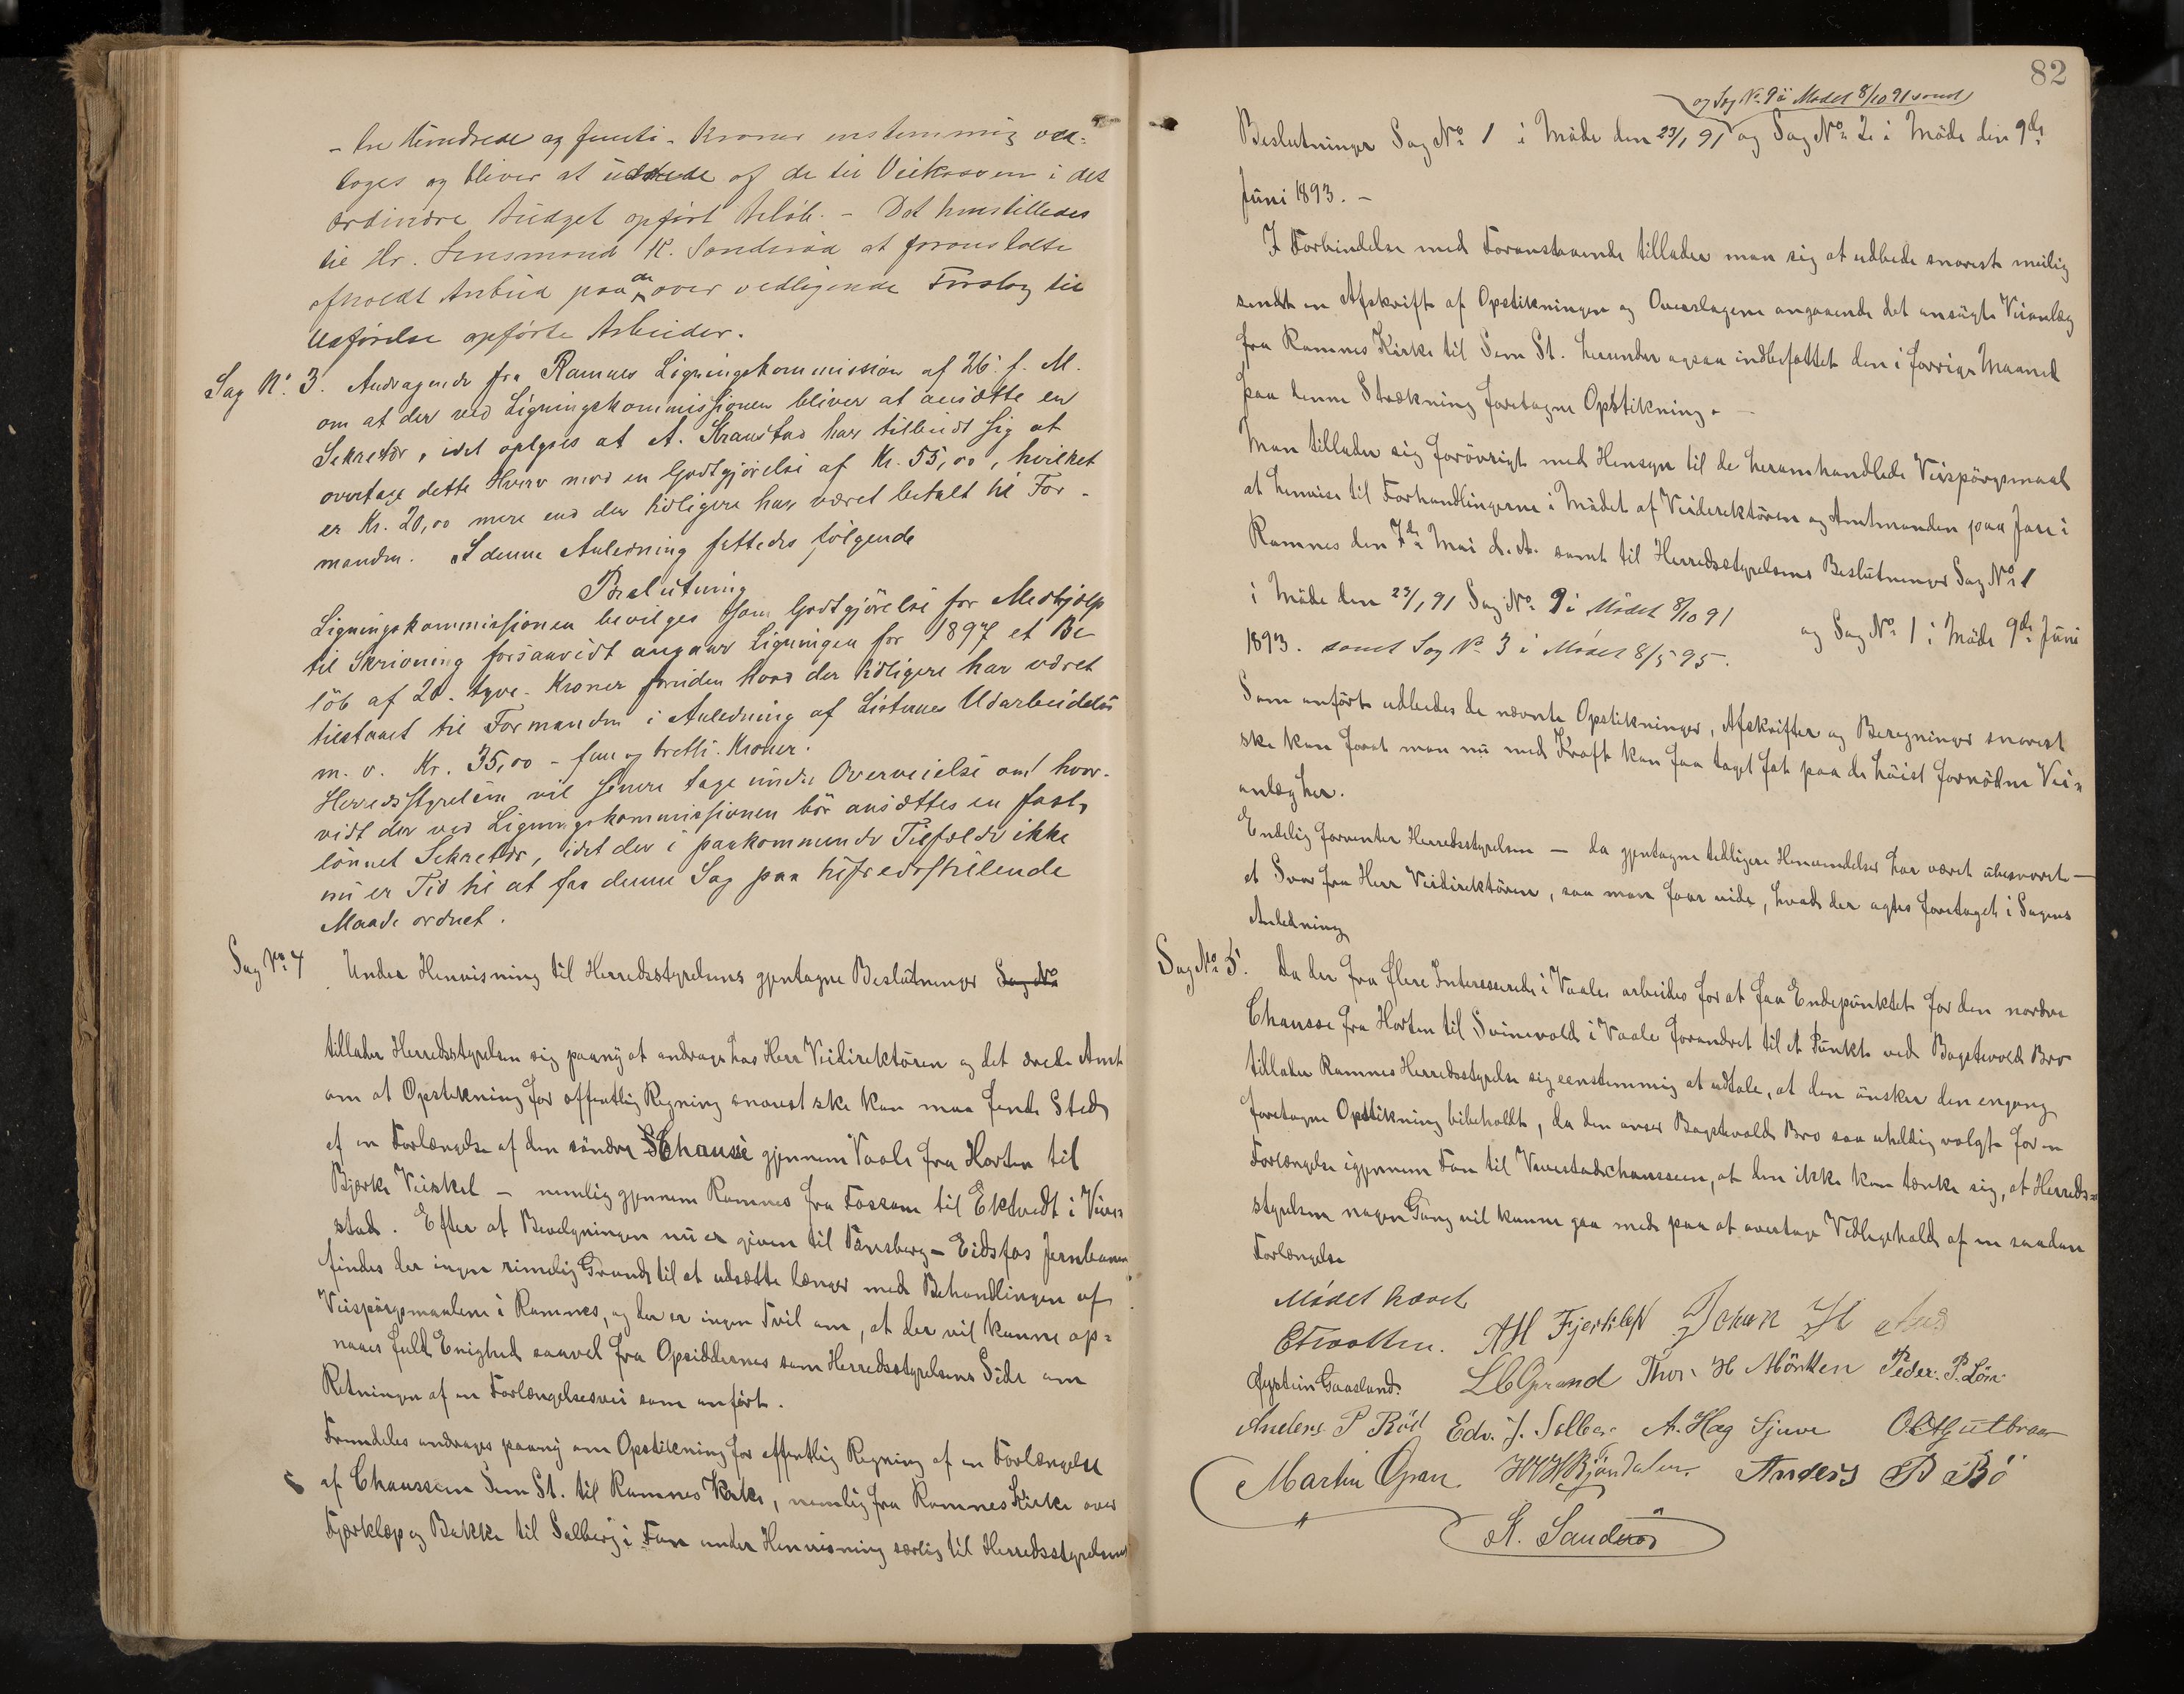 - tre Hundrede og femti - Kroner enstemmig ved-
toges og bliver at udrede af de til Veikassen i det
ordinære Budget opført Beløb. - Det henstilledes
til Hr. Lensmand K. Sanderød at foranstalte
afholdt Anbud paa de over vedliggende Forslag til
Udførelse opførte Arbeider.
Sag No. 3. Andragende fra Ramnes Ligningskommission af 26. f. M.
om at der ved Ligningskommissionen bliver at ansætte en
Sekretær, idet oplyses at A. Kraustad har tilbudt sig at
overtage dette Hverv mod en Godtgjørelse af Kr. 55,00, hvilket
er Kr. 20,00 mere end der tidligere har været betalt til For-
manden. I denne Anledning fattedes følgende
Beslutning
Ligningskommissionen bevilges som Godtgjörelse for Medhjælp
til Skrivning forsaavidt angaar Ligningen for 1897 et Be-
løb af 20 - tyve - Kroner foruden hvad der tidligere har været
tilstaaet til Formanden i Anledning af Listernes Udarbeidelse
m. v. Kr. 35,00 - fem og tretti - Kroner.
Herredsstyrelsen vil senere tage under Overveielse om hvor-
vidt der ved Ligningskommissionen bör ansættes en fast,
lönnet Sekretær, idet der i paakommende Tilfælde ikke
nu er Tid til at faa denne Sag paa tilfredsstillende
Maade ordnet.
Sag No. 4 Under Henvisning til Herredsstyrelsens gjentagne Beslutninger Sag No
tillader Herredsstyrelsen sig paany at andrage hos Herr Veidirektören og det ærede Amt
om at Opstikning for offentlig Regning snarest ske kan maa finde Sted
af en Forlængelse af den söndre Chausse gjennem Vaale fra Horten til
Bjerke Veiskel - nemlig gjennem Ramnes fra Fossum til Ektvedt i Viver-
stad. Efter at Bevilgningen nu er given til Tønsberg-Eidsfos Jernbane
findes der ingen rimelig Grund til at udsætte længer med Behandlingen af
Veispörgsmaalene i Ramnes, og der er ingen Tvil om, at der vil kunne op-
naaes fuld Enighed saavel fra Opsiddernes som Herredsstyrelsens Side om
Retningen af en Forlængelsesvei som anfört.
Fremdeles andrages paany om Opstikning for offentlig Regning af en Forlængelse
af Chausseen Sem St. til Ramnes Kirke, nemlig fra Ramnes Kirke over
Fjærklæp og Bakke til Solberg i Fon under Henvisning særlig til Herredsstyrelsens
82
og Sag No. 9 i Mødet 8/10 91 samt
Beslutninger Sag No. 1 i Möde den 23/1 91 og Sag No. 2 i Möde den 9de
Juni 1893. -
I Forbindelse med Foranstaaende tillader man sig at udbede snarest mulig
sendt en Afskrift af Opstikningen og Overslagene angaaende det ansögte Veianlæg
fra Ramnes Kirke til Sem St. herunder ogsaa indbefattet den i forrige Maaned
paa denne Strækning foretagne Opstikning. -
Man tillader sig forövrigt med Hensyn til de heromhandlede Veispörgsmaal
at henvise til Forhandlingerne i Mödet af Veidirektören og Amtmanden paa Jare i
Ramnes den 7de Mai d. A. samt til Herredsstyrelsens Beslutninger Sag No. 1
i Möde den 23/1 91 Sag No. 9 i Mödet 8/10 91 og Sag No. 1 i Möde 9de Juni
1893. samt Sag No. 3 i Mødet 8/5 95.
Som anført udbedes de nævnte Opstikninger, Afskrifter og Beregninger snarest
ske kan forat man nu med Kraft kan faa taget fat paa de höist fornödne Vei-
anlæg her.
Endelig forventer Herredsstyrelsen - da gjentagne tidligere Henvendelser har været ubesvaret -
et Svar fra Herr Veidirektören, saa man faar vide, hvad der agtes foretaget i Sagens
Anledning
Sag No. 5. Da der fra flere Interesserede i Vaale arbeides for at faa Endepunktet for den nordre
Chausse fra Horten til Svinevold i Vaale forandret til et Punkt ved Bagstevold Bro
tillader Ramnes Herredsstyrelse sig eenstemmig at udtale, at den önsker den engang
foretagne Opstikning bibeholdt, da den anser Bagstevold Bro saa uheldig valgt for en
Forlængelse igjennem Fon til Viverstadchausseen, at den ikke kan tænke sig, at Herreds-
styrelsen nogen Gang vil kunne gaa med paa at overtage Vedligehold af en saadan
Forlængelse
Mødet hævet
AH Fjertilep Johan H
Øystein Gaasland. Thor H Mörken Peder. P. Lön
Anders P Röd Edv. J. Solberg A. Hag Sjuve
Martin Gran HHBjöndalen. Anders P Bö
K. Sanderød